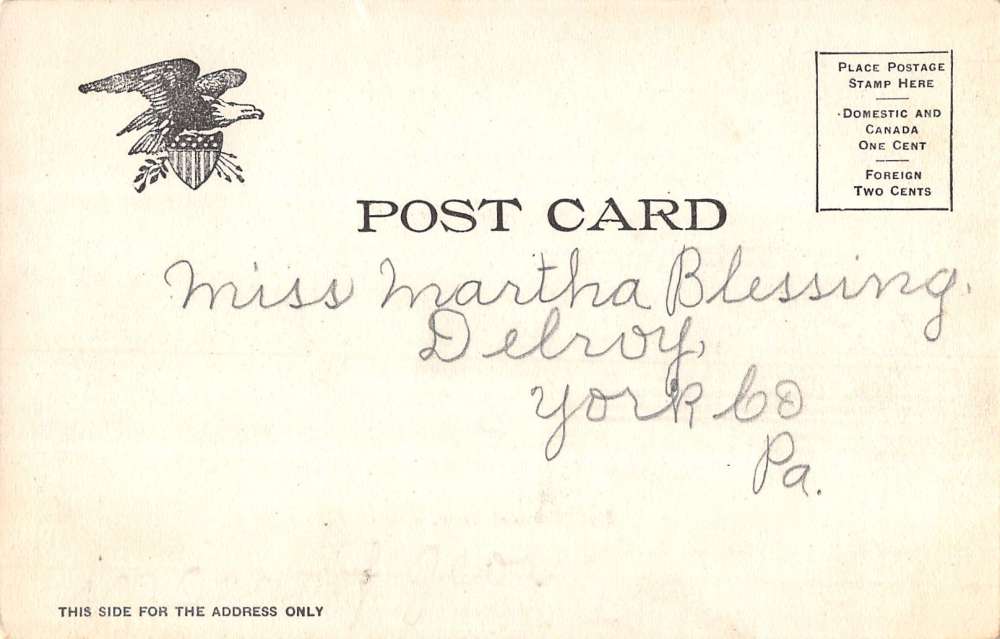 PLACE POSTAGE
STAMP HERE
DOMESTIC AND
CANADA
ONE CENT
FOREIGN
TWO CENTS
POST CARD
Miss Martha Blessing.
Delroy,
York Co
Pa.
THIS SIDE FOR THE ADDRESS ONLY